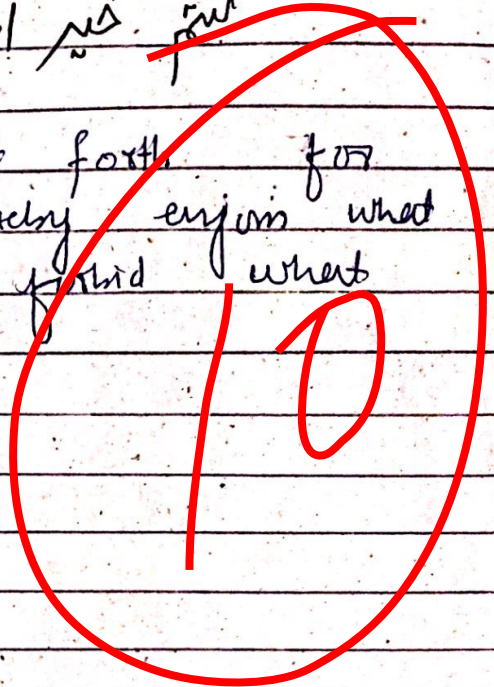 خیر
forth for
enjoin what
forbid what
10